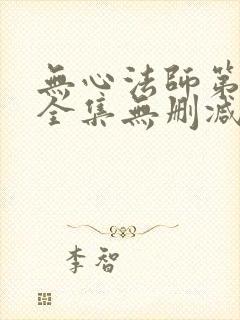 無心法師第
全集無刪減
李智